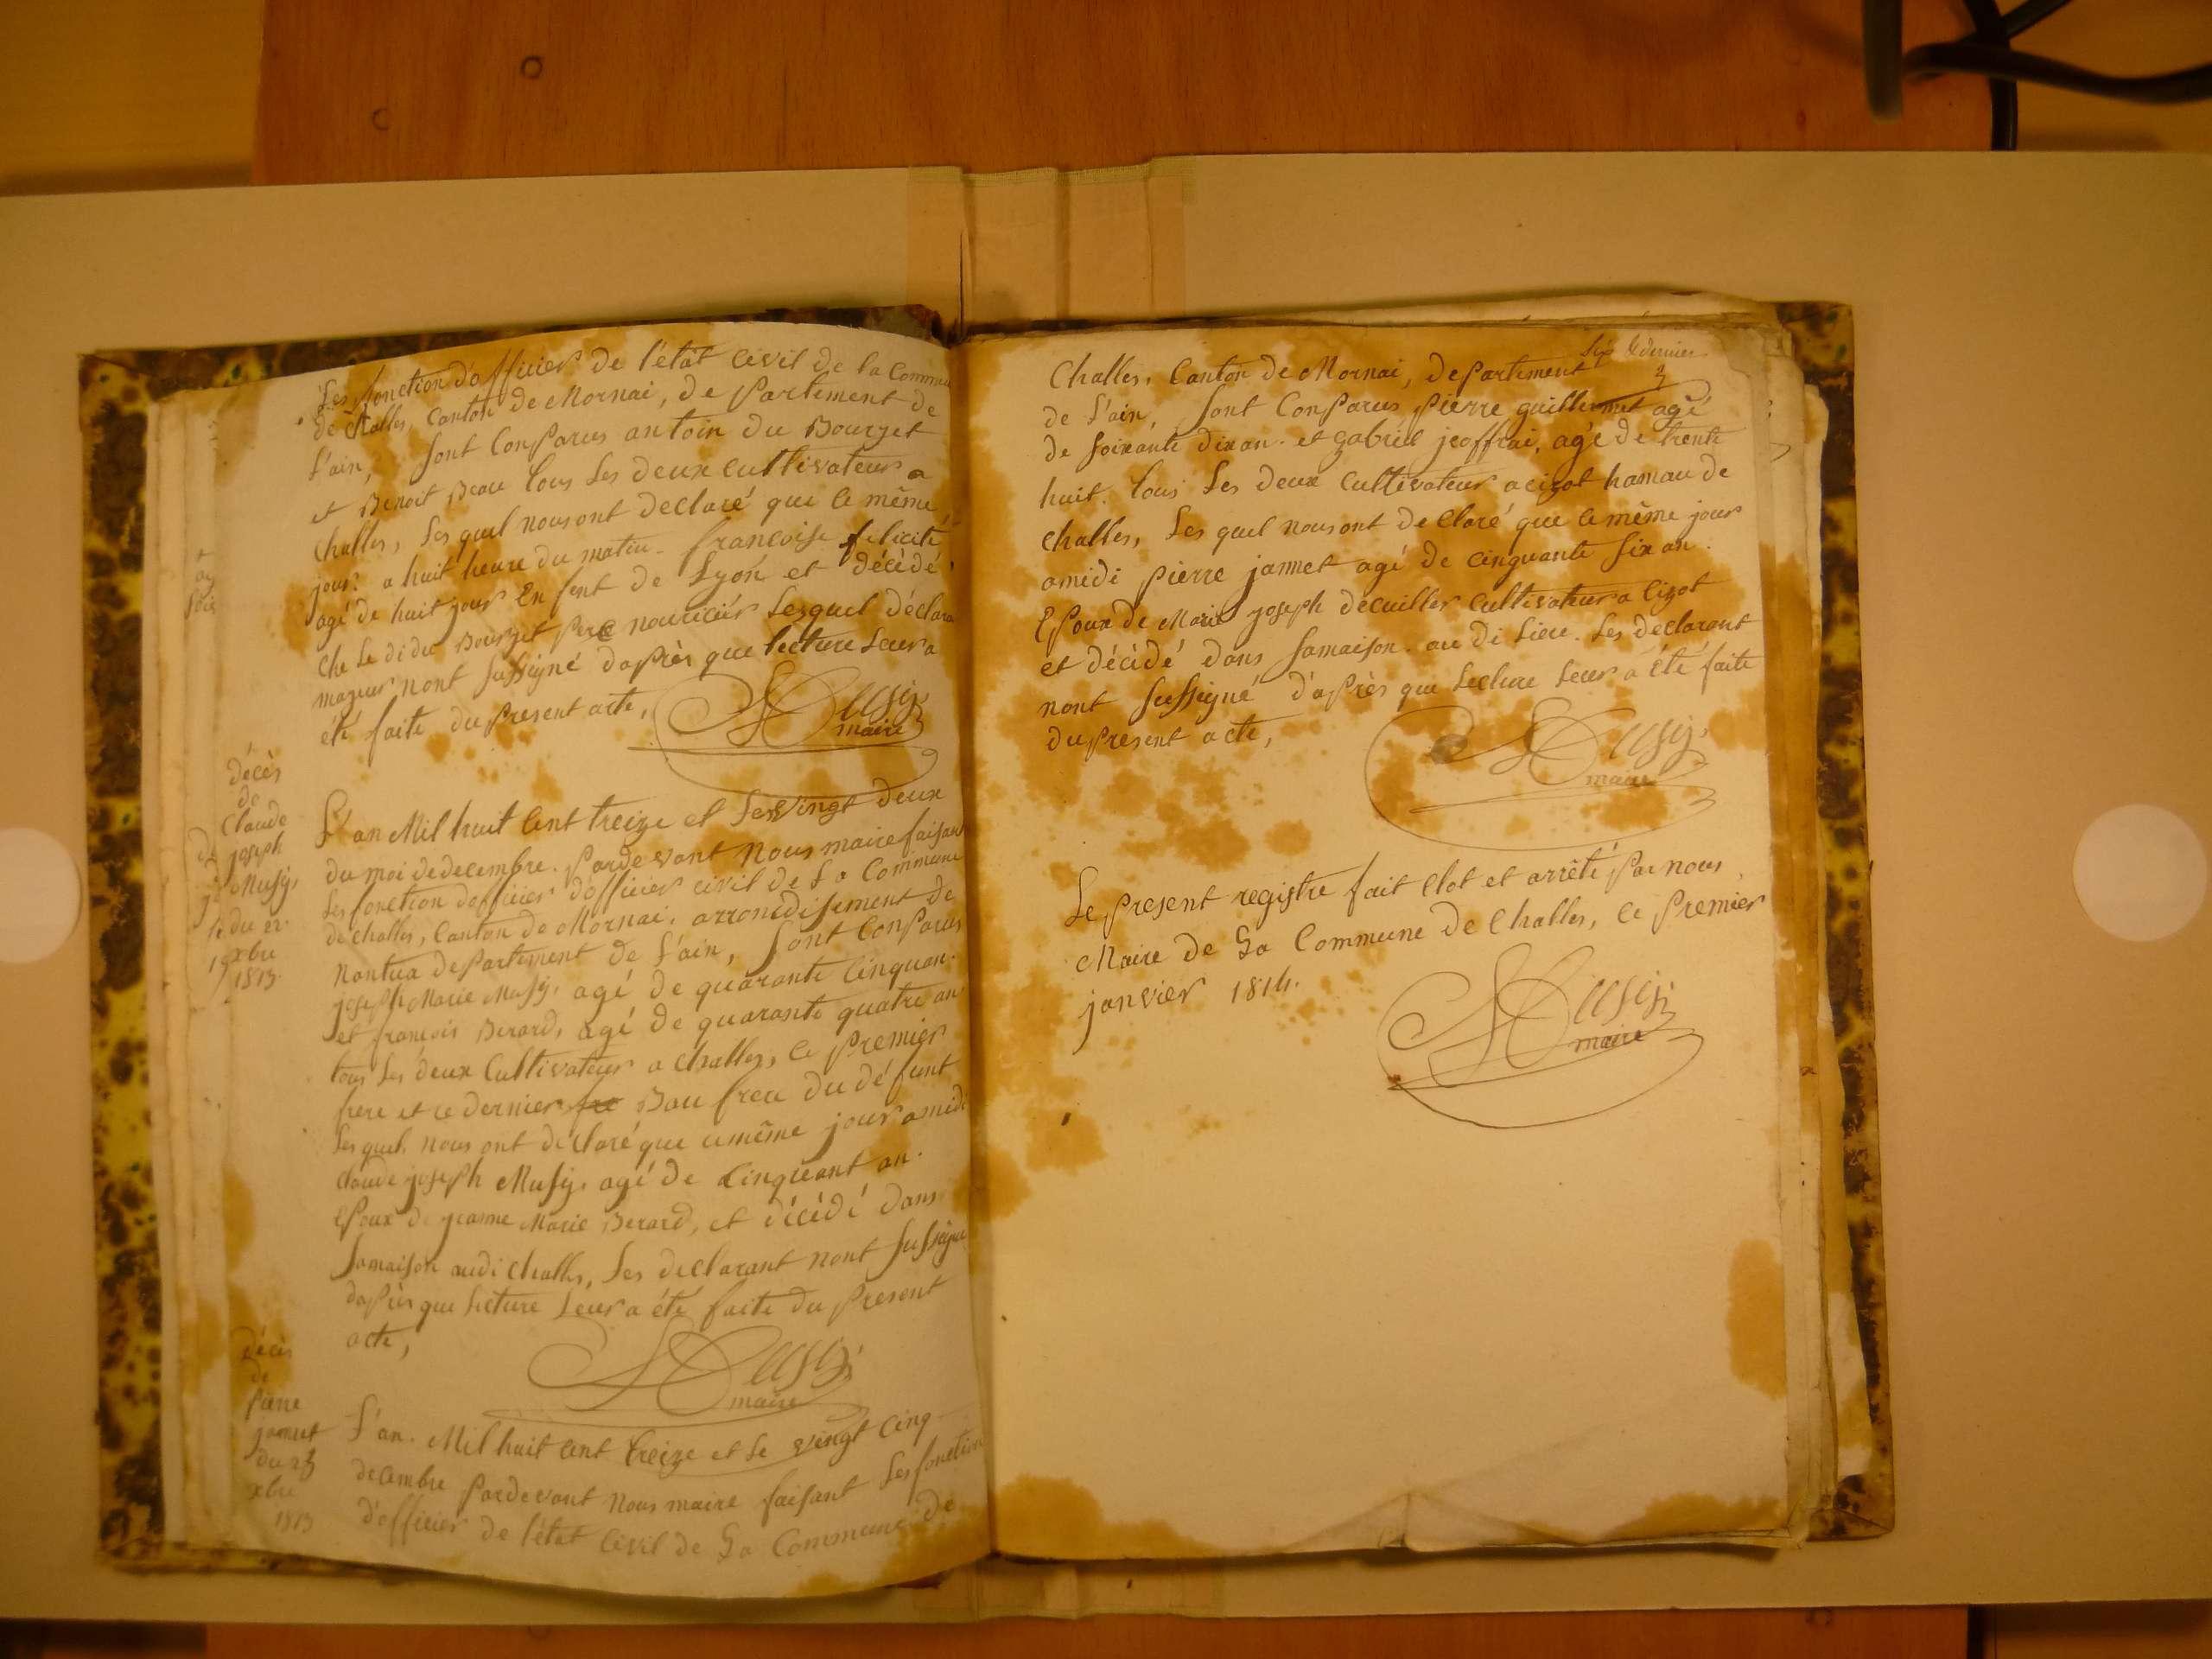 Les fonction d'officier de l'état civil de la Commu
de Challes, Canton de Mornai, departement de
l'ain, sont Comparus antoin du Bourget
et Benoit Beau tous Les deux Cultivateur a
Challes, Les quel nous ont declaré que le même
jour. a huit heure du matin. francoise felicité
agé de huit jour Enfent de Lyon et décèdé
Che Le di du Bourget pere nouricier Lesquel déclara
mageur nont sussigné daprès que lecture Leur a
été faite du present acte,
Musy
maire
décès
de
Claude
joseph
Musy,
du 22
xbre
1813
L'an Mil huit Cent treize et Le Vingt deux
du moi de decembre. Pardevant Nous maire faisant
Les fonction dofficier dofficier civil de La Commune
de challes, Canton de Mornai, arrondisement de
Nantua departement de L'ain, sont Comparus
joseph Marie Musy, agé de quarante Cinq an.
et francois Berard, agé de quarante quatre an
tous Les deux Cultivateur a Challes, Ce Premier
frere et ce dernier fre Bau frere du défunt
Les quel nous ont déclaré que cemême jour a midi
Claude joseph Musy, agé de Cinquant an.
Epoux de jeanne Marie Berard, et décèdé dans
samaison audi Challes, Les declarant nont sussigné
daprès que Lecture Leur a été faite du present
acte,
Musy
maire
décès
de
pierre
jannet
du 25
xbre
1813
L'an. Mil huit cent treize et Le vingt Cinq
decembre pardevant Nous maire faisant Les fonction
d'officier de l'état Civil de La Commune de
Six & dernier
Challes, Canton de Mornai, departement
de L'ain, sont Comparus pierre guillermet agé
de soixante dix an. et gabriel jeoffrai, agé de trente
huit. tous Les deux Cultivateur a cizot hamau de
Challes, Les quel nous ont declaré que le même jour
amidi pierre jannet agé de Cinquante six an.
Epoux de Marie joseph decuiller Cultivateur a Cizot
et décèdé dans samaison. au di Lieu. Les declarant
nont sussigné d'après que Lecture Leur a été faite
du present acte,
Musy,
maire
Le present registre fait Clot et arrêté par nous
Maire de La Commune de Challes, Ce Premier
janvier 1814.
Musy
maire